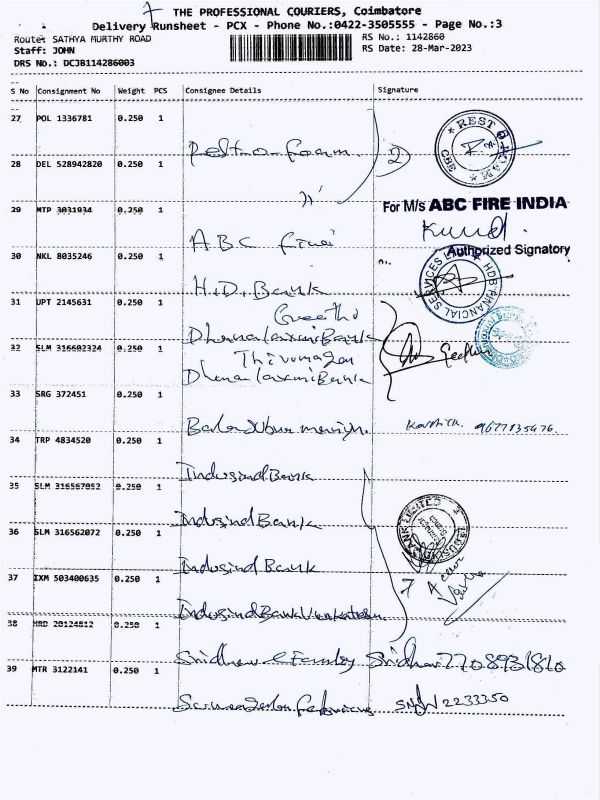 THE PROFESSIONAL COURIERS, Coimbatore
Delivery Runsheet - PCX - Phone No.:0422-3505555 - Page No.:3
Route: SATHYA MURTHY ROAD
RS No.: 1142860
Staff: JOHN
RS Date: 28-Mar-2023
DRS No.: DCJB114286003
S No Consignment No Weight PCS Consignee Details Signature
27 POL 1336781 0.250 1
REST
CBE
28 DEL 528942820 0.250 1
For M/s ABC FIRE INDIA
29 MTP 3031934 0.250 1
ABC Fire
Authorized Signatory
30 NKL 8035246 0.250 1
H.D. Bank
HDB FINANCIAL SERVICES
31 UPT 2145631 0.250 1
Geetha
Dhanalaxmi Bank
32 SLM 316602324 0.250 1
Thirumagan
Dhanalaxmi Bank
Geetha
33 SRG 372451 0.250 1
Karthick.
34 TRP 4834520 0.250 1
Indusind Bank
35 SLM 316567052 0.250 1
Indusind Bank
36 SLM 316562072 0.250 1
Indusind Bank
37 IXM 503400635 0.250 1
Indusind Bank Venkatesan
38 HRD 20124812 0.250 1
Sridhar & Family Sridhar 7708931810
39 MTR 3122141 0.250 1
2233350